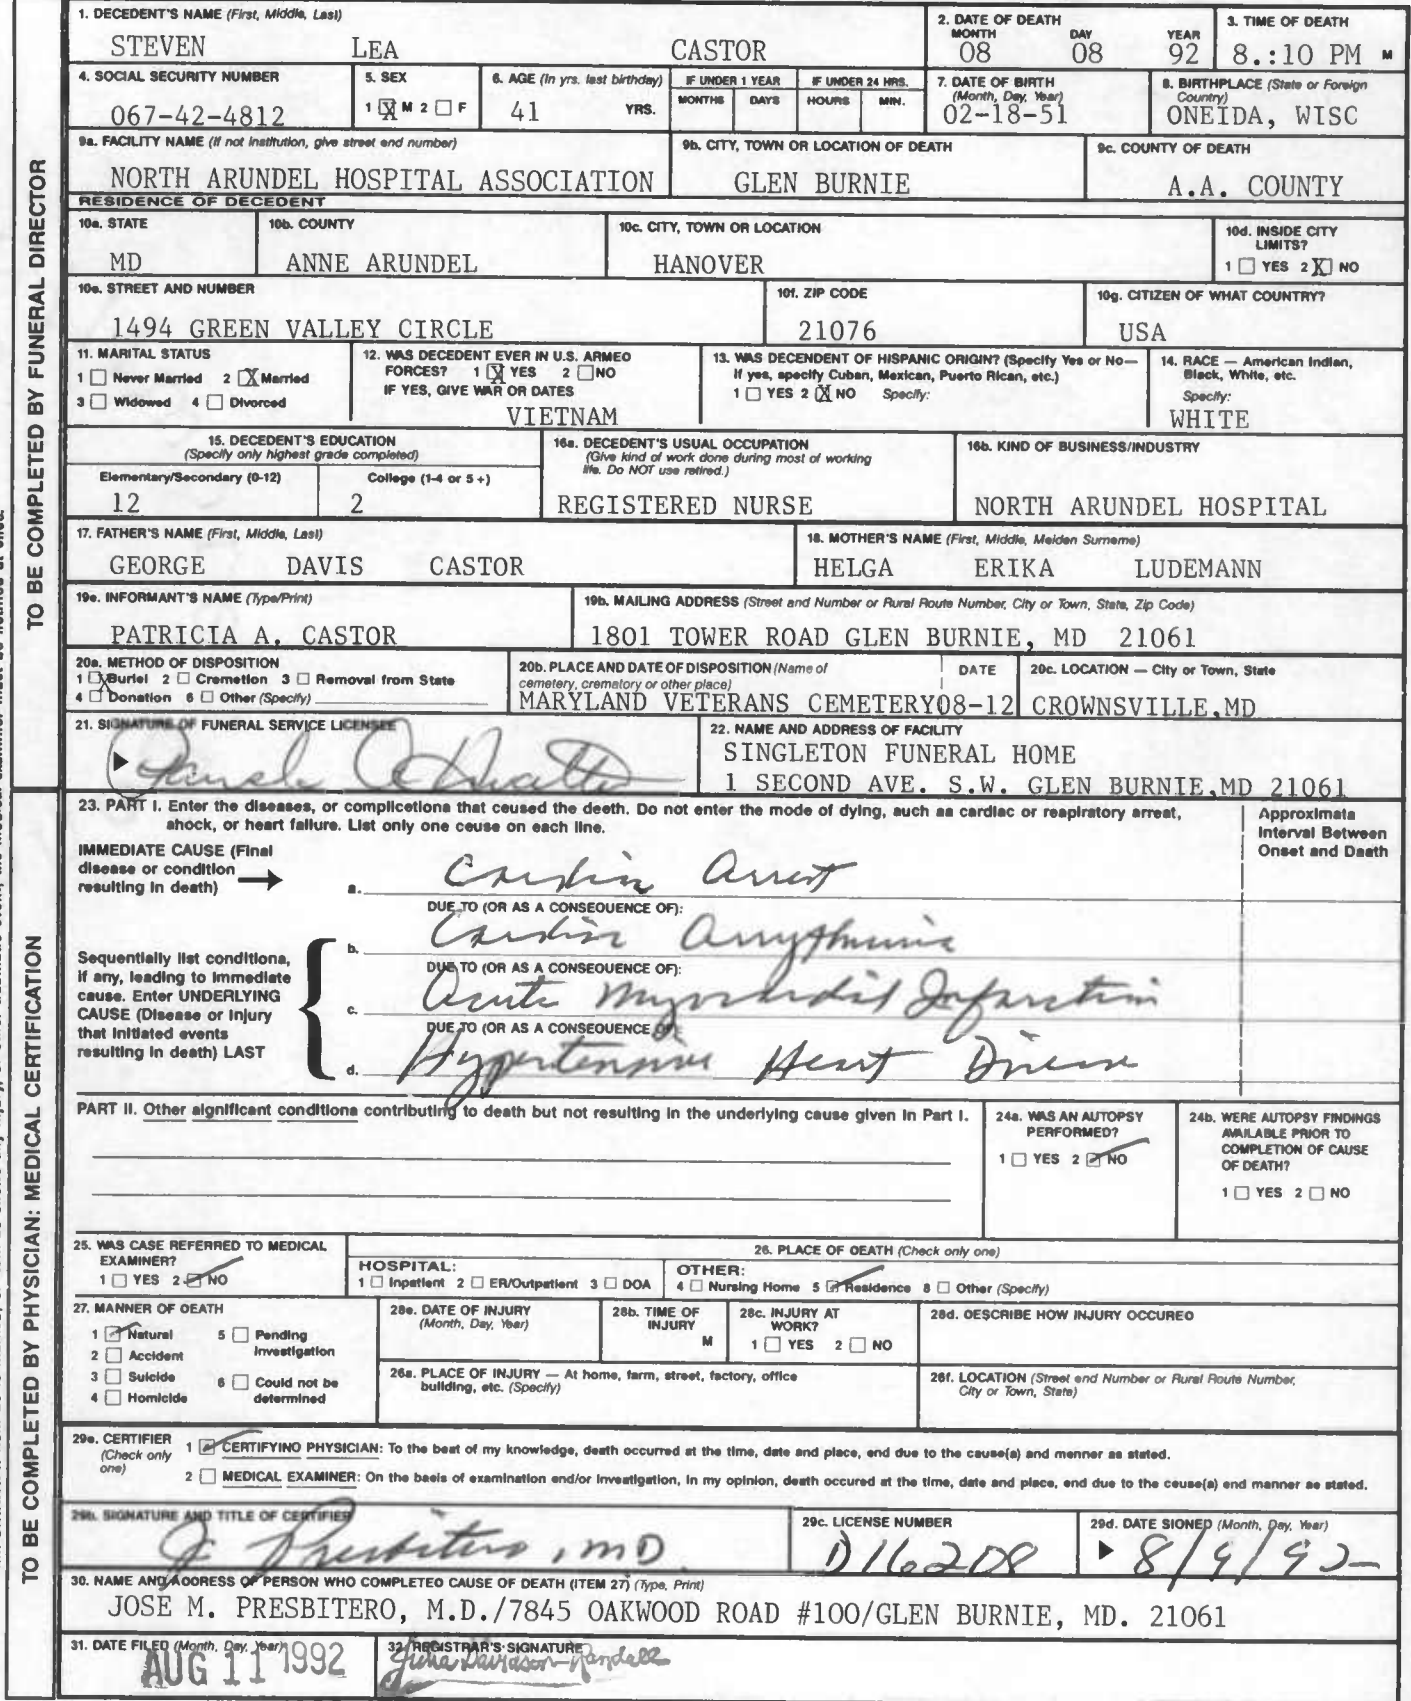 TO BE COMPLETED BY FUNERAL DIRECTOR
1. DECEDENT'S NAME (First, Middle, Last)
STEVEN LEA CASTOR
2. DATE OF DEATH
MONTH DAY YEAR
08 08 92
3. TIME OF DEATH
8.:10 PM M
4. SOCIAL SECURITY NUMBER
067-42-4812
5. SEX
1 X M 2 F
6. AGE (In yrs. last birthday)
41 YRS.
IF UNDER 1 YEAR
MONTHS DAYS
IF UNDER 24 HRS.
HOURS MIN.
7. DATE OF BIRTH
(Month, Day, Year)
02-18-51
8. BIRTHPLACE (State or Foreign
Country)
ONEIDA, WISC
9a. FACILITY NAME (If not institution, give street and number)
NORTH ARUNDEL HOSPITAL ASSOCIATION
9b. CITY, TOWN OR LOCATION OF DEATH
GLEN BURNIE
9c. COUNTY OF DEATH
A.A. COUNTY
RESIDENCE OF DECEDENT
10a. STATE
MD
10b. COUNTY
ANNE ARUNDEL
10c. CITY, TOWN OR LOCATION
HANOVER
10d. INSIDE CITY
LIMITS?
1 YES 2 X NO
10e. STREET AND NUMBER
1494 GREEN VALLEY CIRCLE
10f. ZIP CODE
21076
10g. CITIZEN OF WHAT COUNTRY?
USA
11. MARITAL STATUS
1 Never Married 2 X Married
3 Widowed 4 Divorced
12. WAS DECEDENT EVER IN U.S. ARMED
FORCES? 1 X YES 2 NO
IF YES, GIVE WAR OR DATES
VIETNAM
13. WAS DECENDENT OF HISPANIC ORIGIN? (Specify Yes or No—
If yes, specify Cuban, Mexican, Puerto Rican, etc.)
1 YES 2 X NO Specify:
14. RACE — American Indian,
Black, White, etc.
Specify:
WHITE
15. DECEDENT'S EDUCATION
(Specify only highest grade completed)
Elementary/Secondary (0-12)
12
College (1-4 or 5+)
2
16a. DECEDENT'S USUAL OCCUPATION
(Give kind of work done during most of working
life. Do NOT use retired.)
REGISTERED NURSE
16b. KIND OF BUSINESS/INDUSTRY
NORTH ARUNDEL HOSPITAL
17. FATHER'S NAME (First, Middle, Last)
GEORGE DAVIS CASTOR
18. MOTHER'S NAME (First, Middle, Maiden Surname)
HELGA ERIKA LUDEMANN
19a. INFORMANT'S NAME (Type/Print)
PATRICIA A. CASTOR
19b. MAILING ADDRESS (Street and Number or Rural Route Number, City or Town, State, Zip Code)
1801 TOWER ROAD GLEN BURNIE, MD 21061
20a. METHOD OF DISPOSITION
1 X Burial 2 Cremation 3 Removal from State
4 Donation 6 Other (Specify)
20b. PLACE AND DATE OF DISPOSITION (Name of
cemetery, crematory or other place)
DATE
MARYLAND VETERANS CEMETERY 08-12
20c. LOCATION — City or Town, State
CROWNSVILLE,MD
21. SIGNATURE OF FUNERAL SERVICE LICENSEE
22. NAME AND ADDRESS OF FACILITY
SINGLETON FUNERAL HOME
1 SECOND AVE. S.W. GLEN BURNIE,MD 21061
TO BE COMPLETED BY PHYSICIAN: MEDICAL CERTIFICATION
23. PART I. Enter the diseases, or complications that caused the death. Do not enter the mode of dying, such as cardiac or respiratory arrest,
shock, or heart failure. List only one cause on each line.
Approximate
Interval Between
Onset and Death
IMMEDIATE CAUSE (Final
disease or condition
resulting in death)
a. Cardiac Arrest
DUE TO (OR AS A CONSEQUENCE OF):
Sequentially list conditions,
if any, leading to immediate
cause. Enter UNDERLYING
CAUSE (Disease or Injury
that initiated events
resulting in death) LAST
b. Cardiac Arrythmia
DUE TO (OR AS A CONSEQUENCE OF):
c. Acute Myocardial Infarction
DUE TO (OR AS A CONSEQUENCE OF):
d. Hypertensive Heart Disease
PART II. Other significant conditions contributing to death but not resulting in the underlying cause given in Part I.
24a. WAS AN AUTOPSY
PERFORMED?
1 YES 2 NO
24b. WERE AUTOPSY FINDINGS
AVAILABLE PRIOR TO
COMPLETION OF CAUSE
OF DEATH?
1 YES 2 NO
25. WAS CASE REFERRED TO MEDICAL
EXAMINER?
1 YES 2 NO
26. PLACE OF DEATH (Check only one)
HOSPITAL:
1 Inpatient 2 ER/Outpatient 3 DOA
OTHER:
4 Nursing Home 5 Residence 8 Other (Specify)
27. MANNER OF DEATH
1 Natural 5 Pending
Investigation
2 Accident
3 Suicide 6 Could not be
4 Homicide determined
28a. DATE OF INJURY
(Month, Day, Year)
28b. TIME OF
INJURY
M
28c. INJURY AT
WORK?
1 YES 2 NO
28d. DESCRIBE HOW INJURY OCCURED
28e. PLACE OF INJURY — At home, farm, street, factory, office
building, etc. (Specify)
28f. LOCATION (Street and Number or Rural Route Number,
City or Town, State)
29a. CERTIFIER
(Check only
one)
1 CERTIFYING PHYSICIAN: To the best of my knowledge, death occurred at the time, date and place, and due to the cause(s) and manner as stated.
2 MEDICAL EXAMINER: On the basis of examination and/or investigation, in my opinion, death occured at the time, date and place, and due to the cause(s) and manner as stated.
29b. SIGNATURE AND TITLE OF CERTIFIER
J. Presbitero, MD
29c. LICENSE NUMBER
D16208
29d. DATE SIGNED (Month, Day, Year)
8/9/92
30. NAME AND ADDRESS OF PERSON WHO COMPLETED CAUSE OF DEATH (ITEM 27) (Type, Print)
JOSE M. PRESBITERO, M.D./7845 OAKWOOD ROAD #100/GLEN BURNIE, MD. 21061
31. DATE FILED (Month, Day, Year)
AUG 11 1992
32. REGISTRAR'S SIGNATURE
Julia Davidson-Randall